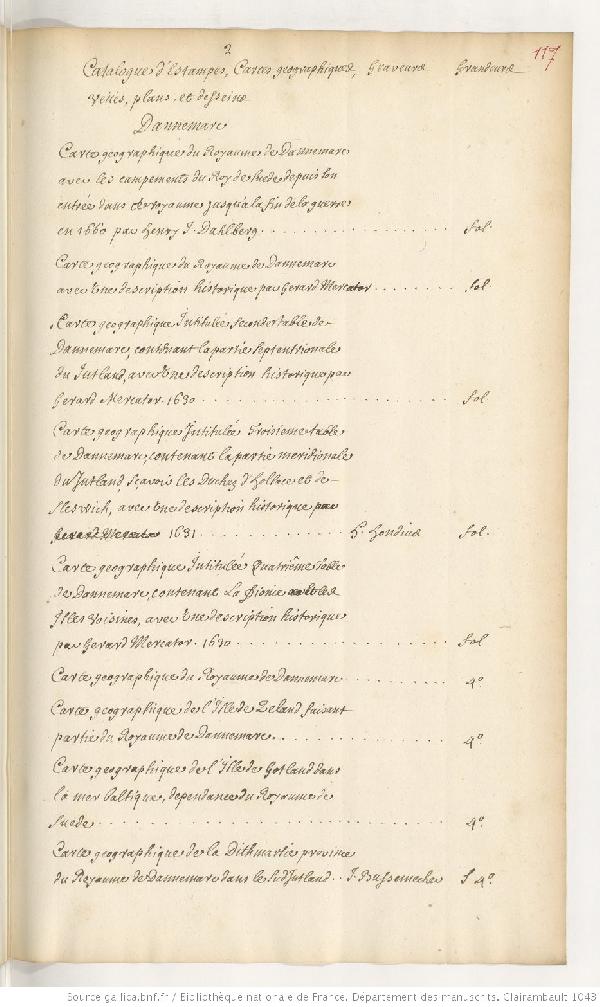 2
117
Catalogue d'Estampes, Cartes geographiques, Graveurs Grandeurs
Veües, plans et desseins
Dannemarc
Carte geographique du Royaume de Dannemarc
avec les campements du Roy de Suede depuis son
entrée dans ce royaume jusqu'a la fin de la guerre
en 1660 par Henry J. Dahlberg. fol.
Carte geographique du Royaume de Dannemarc
avec Une description historique par Gerard Mercator fol.
Carte geographique Intitulée Seconde table de
Dannemarc, contenant la partie septentrionale
du Jutland, avec Une description historique par
Gerard Mercator. 1630 fol
Carte geographique Intitulée Troisieme table
de Dannemarc, contenant la partie meridionale
du Jutland, sçavoir les Duchez d'Holface et de
Sleswich, avec Une description historique par
Gerard Mercator 1631. H. Hondius fol.
Carte geographique Intitulée Quatriême table
de Dannemarc, contenant La Fionie et les
Isles voisines, avec Une description historique
par Gerard Mercator. 1630 fol
Carte geographique du Royaume de Dannemarc 4º
Carte geographique de l'Isle de Zeland faisant
partie du Royaume de Dannemarc. 4º
Carte geographique de l'Isle de Gotland dans
la mer baltique, dependance du Royaume de
Suede 4º
Carte geographique de la Dithmartie province
du Royaume de Dannemarc dans le Sud Jutland. J. Bussemecher f 4º
Source gallica.bnf.fr / Bibliothèque nationale de France. Département des manuscrits. Clairambault 1043